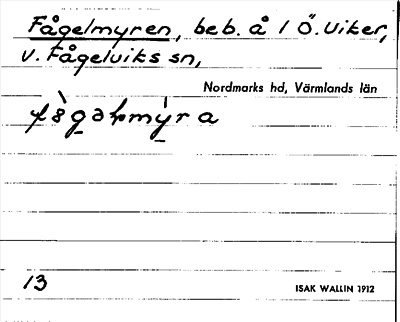 Fågelmyren, beb. å 1 Ö. Viker,
V. Fågelviks sn,
Nordmarks hd, Värmlands län
13
ISAK WALLIN 1912